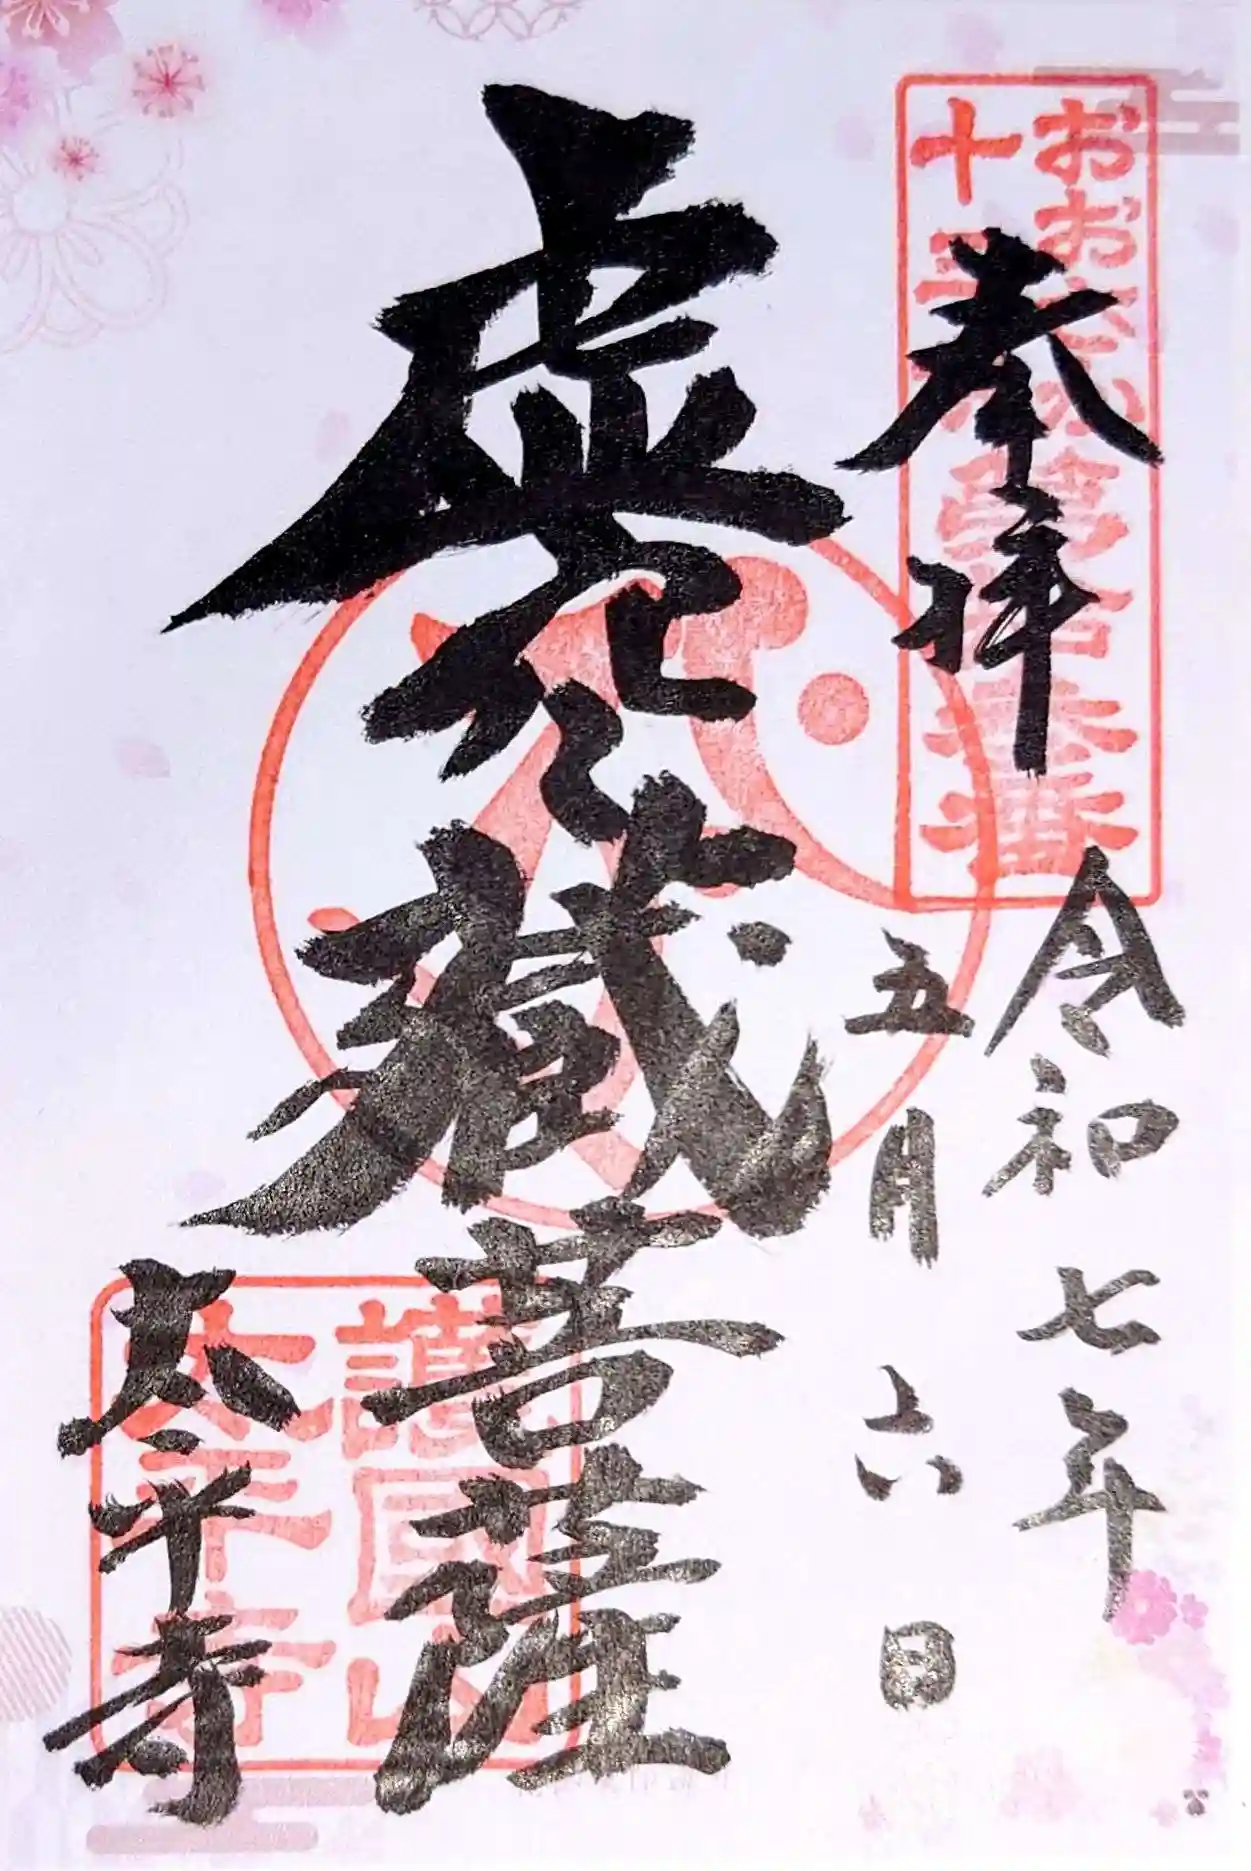 奉拝
おおさか
十三
令和七年
五月六日
虚空藏菩薩
護國山
太平寺
太平寺